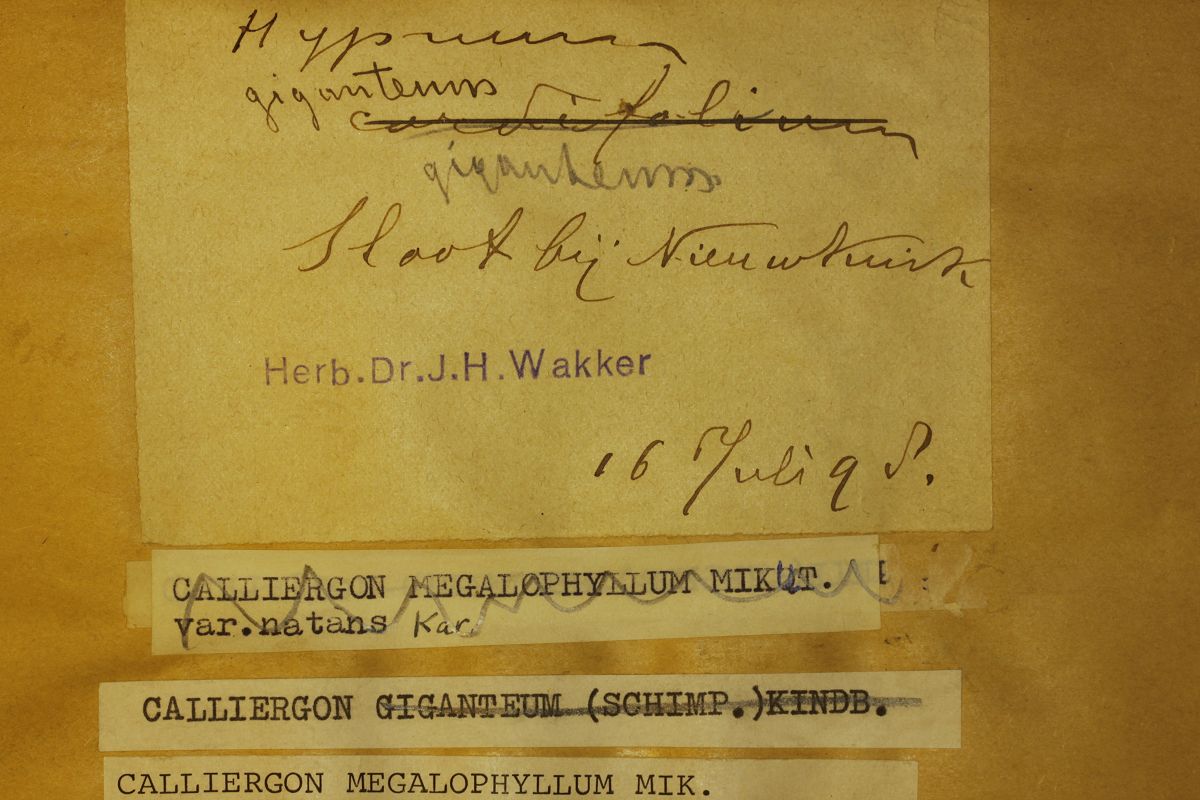 Hypnum
giganteum
cordifolium
giganteum
Sloot bij Nieuwkuik
Herb.Dr.J.H.Wakker
16 Juli 98.
CALLIERGON MEGALOPHYLLUM MIKUT.
var.natans Kar.
CALLIERGON GIGANTEUM (SCHIMP.)KINDB.
CALLIERGON MEGALOPHYLLUM MIK.